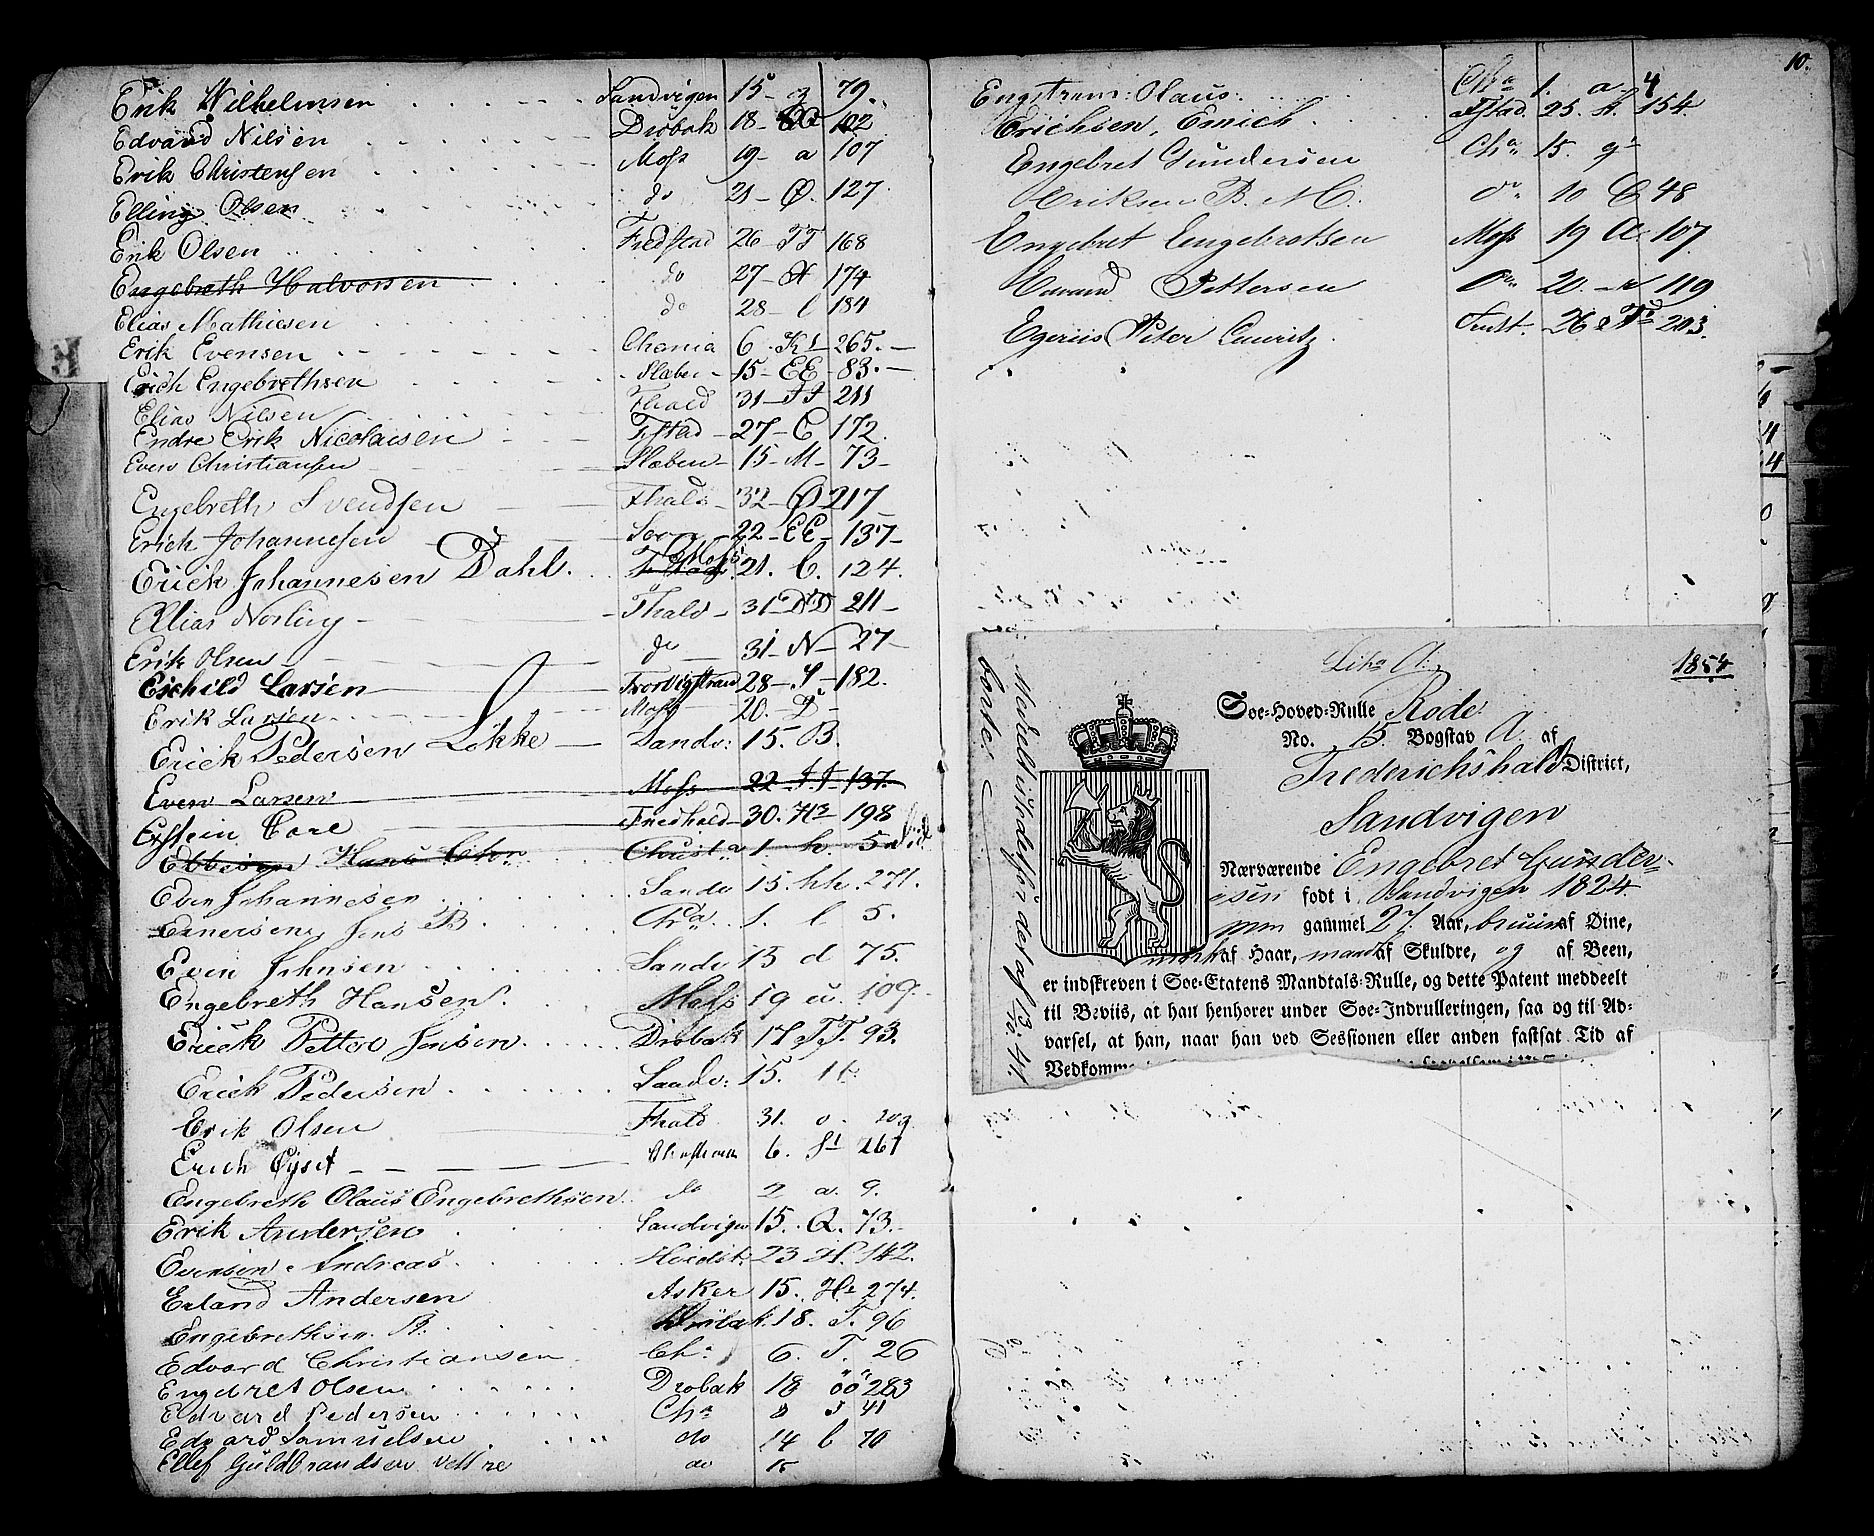 Erik Wilhelmsen Sandvigen 15 - g 79.
Edvard Nilsen Dröbak 18 - 102
Erik Christensen Moss 19 - a 107
Elling Olsen do 21 - Ø. 127.
Erik Olsen Fredstad 26 - TT 168
Engebreth Halvorsen do 27 - 174
Elias Mathiesen do 28 - l 184
Erik Evensen Chania 6. K1 - 265. -
Erich Engebrethsen Slæben - 15 - EE - 83. -
Elias Nilsen Fhald 31 - 211
Endre Erik Nicolaisen Fstad - 27 - C 172.
Even Christiansen Slæben - 15 - M - 73 -
Engebreth Svendsen Fhald - 32 - Ø 217 -
Erich Johannesen 22 - EE - 137 -
Erick Johannesen Dahl. Moss 21. C. 124.
Elias Norling - Fhald - 31 - DD 211 -
Erik Olsen - do - 31 - N - 27 -
Eschild Larsen - 28 - S - 182.
Erik Larsen Moss 20. - D -
Erick Pedersen Løkke - Sandv: 15. B.
Even Larsen Moss 22 - 137.
Eystein Core Fredhald - 30. H2 198
Ebbesen Hans Chr Christa 1. - h - 5
Even Johannesen Sandv 15. hh. 271.
Einersen, Jens B. Chra 1. l 5.
Even Johnsen Sandv 15 d 75.
Engebreth Hansen. Moss 19 u. 109.
Erick Petter Jensen. Dröbak 17 TT. 93.
Erick Pedersen Sandv: 15.
Erik Olsen Fhald. 31. o. 209
Erich Qyist - 6. S1 267
Engebreth Olaus Engebrethsen. do 2 a. 9.
Erik Andersen Sandvigen 15. Q. 73.
Evensen. Andreas. 23 H. 142.
Erland Andersen Asker 15. H2 274.
Engebrethsen. Dröbak. 18. T. 96
Edvard Christiansen Cha 6. T. 26
Engebret Olsen Drøbak 18 öö 283
Edvard Pedersen Cha 8 S 41
Edvard Samuelsen do 14 b 70
Ellef Guldbrandsen Vettre do 15
10.
Engstrøm: Olaus. Cha 1. a. 4
Erichsen, Emich. Fstad. 25. 154.
Engebret Gundersen Cha 15. g
Eriksen B. M. 10 C 48
Engebret Engebretsen Moss 19 A. 107.
Edvard Pettersen 20. - 119
Egeriis Peter Lauritz. 26 203.
Litr A. 1854
Soe-Hoved-Rulle Rode
No. 15. Bogstav A. af
Frederichshald District,
Sandvigen
Nærværende Engebret Gunder-
sen født i Sandvigen 1824
gammel 27 Aar, bruun af Øine,
mørk af Haar, af Skuldre, og af Been,
er indskreven i Soe-Etatens Mandtals-Rulle, og dette Patent meddeelt
til Beviis, at han henhorer under Soe-Indrulleringen, saa og til Ad-
varsel, at han, naar han ved Sessionen eller anden fastsat Tid af
Vedkomme
borte.